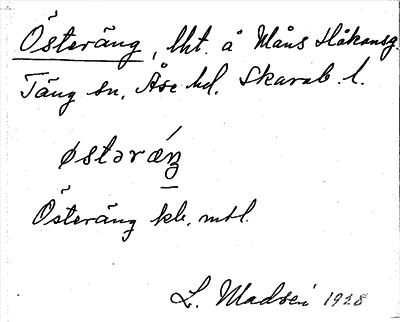 Österäng, lht. å Måns Håkansg.
Täng sn, Åse hd. Skarab. l.
østərǽŋ
Österäng kb, mtl.
L. Madsén 1928